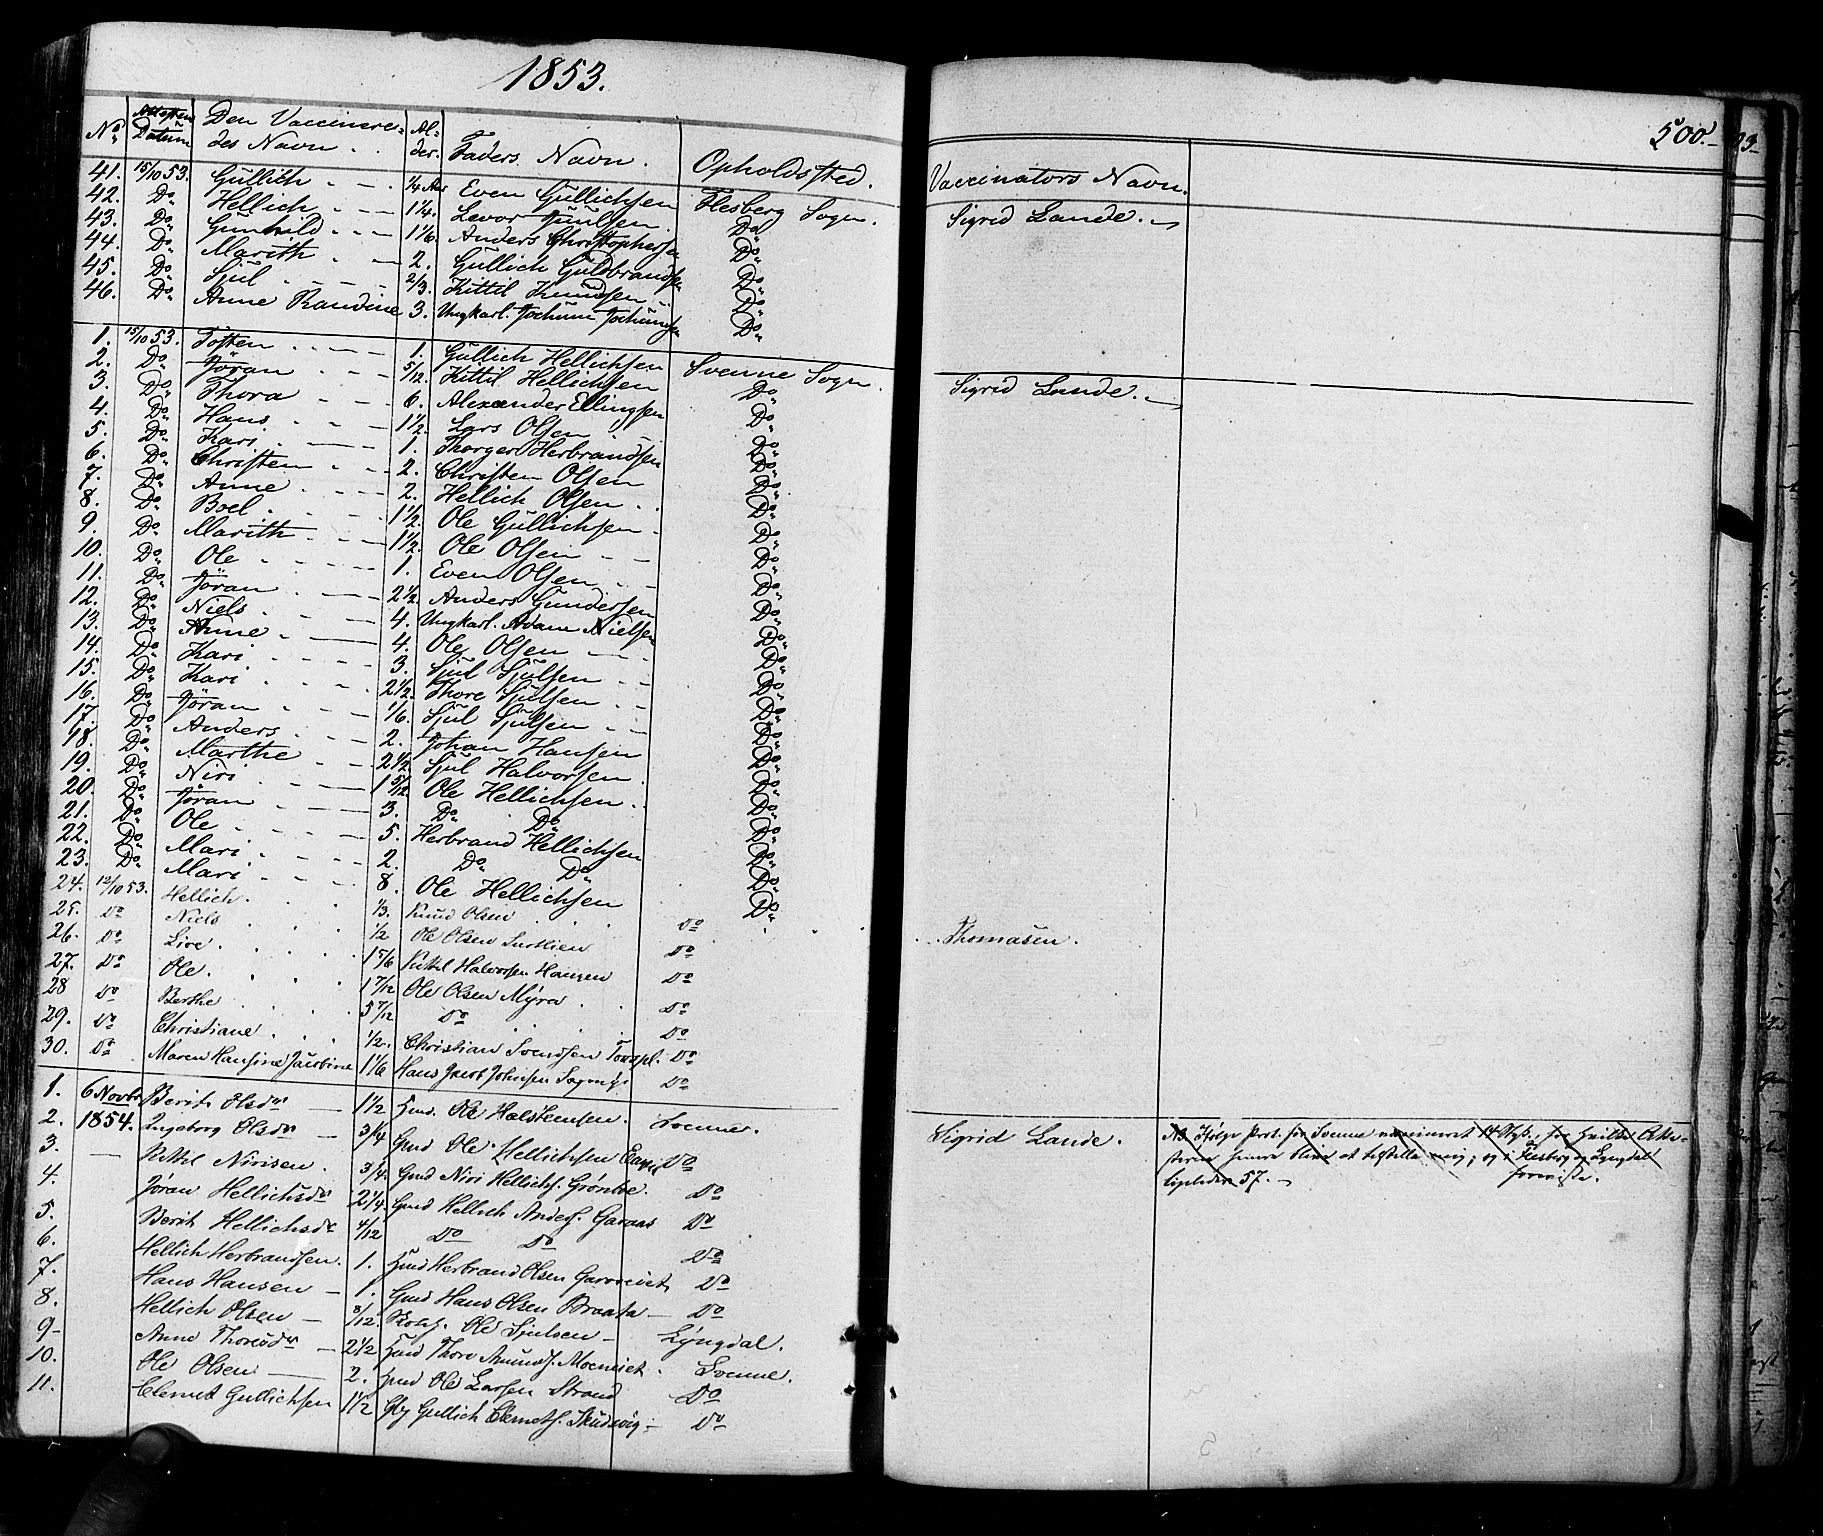 1853.
No. Attestens Datum Den Vaccineredes Navn. Alder. Faders Navn. Opholdsted.
41. 15/10 53. Gullich 1/4 Aar Even Gullichsen Flesberg Sogn.
42. Do Hellich 1 1/4. Levor Juulsen Do
43. Do Gunhild 1 1/6. Anders Christophersen Do
44. Do Marith 2. Gullich Guldbrandsen Do
45. Do Sjul 2/3. Kittil Knudsen Do
46. Do Anne Randine 3. Ungkarl. Jochum Jochumsen Do
1. 15/10 53. Tosten 1. Gullich Hellichsen Svenne Sogn.
2. Do Jöran 5/12. Kittil Hellichsen Do
3. Do Thora 6. Alexander Ellingsen Do
4. Do Hans 1 1/2. Lars Olsen Do
5. Do Kari 1. Thorger Herbrandsen Do
6. Do Christen 2. Christen Olsen Do
7. Do Anne 2. Hellich Olsen Do
8. Do Boel 1 1/2. Ole Gullichsen Do
9. Do Marith 1 1/2. Ole Olsen Do
10. Do Ole 1. Even Olsen Do
11. Do Jöran 2 1/2. Anders Gundersen Do
12. Do Niels 4. Ungkarl. Adam Nielsen Do
13. Do Anne 4. Ole Olsen Do
14. Do Kari 3. Sjul Sjulsen Do
15. Do Kari 2 1/2. Thore Sjulsen Do
16. Do Jöran 1/6. Sjul Sjulsen Do
17. Do Anders 2. Johan Hansen Do
18. Do Marthe 2 1/2. Sjul Halvorsen Do
19. Do Niri 1 5/12 Ole Hellichsen Do
20. Do Jöran 3. Do Do Do
21. Do Ole 5. Herbrand Hellichsen Do
22. Do Mari 2. Do Do Do
23. Do Mari 8. Ole Hellichsen Do
24. 12/10 53. Hellich 1/3. Knud Olsen Do
25. Do Niels 1/2 Ole Olsen Do
26. Do Live 1 5/6 Kittel Halvorsen Haugen Do
27. Do Ole. 1 7/12 Ole Olsen Myra Do
28 Do Berthe 5 7/12 Do Do
29. Do Christiane 1/2. Christian Svendsen Do
30. Do Maren Hansine Jacobine 1 1/6 Hans Jacob Johnsen Do
1. 6 Novbr Berit Olsdr 1 1/2 Ole Halstensen Svenne.
2. 1854. Ingeborg Olsdr 3/4 Gmd Ole Hellichsen Do
3. Kittel Nirisen. 3/4. Gmd Niri Hellichs. Do
4. Jöran Hellichsdr 2 1/4 Gmd Hellich Anders. Garaas Do
5. Berit Hellichsdr 4/12 Do Do Do
6. Hellich Herbrandsen. 1. Herbrand Olsen Do
7. Hans Hansen 1. Gmd Hans Olsen Braata Do
8. Hellich Olsen 8/12 Ole Sjulsen Lyngdal.
9 Anne Thoresdr 2 1/2 Thore Svenne.
10. Ole Olsen 2. Ole Larsen Strand Do
11. Clemet Gullichsen 1 1/2 Gullich Clemets. Do
500.
Vaccinators Navn.
Sigrid Lande.
Sigrid Lande.
Thomasen.
Sigrid Lande.
NB Ifølge Prot. for Svenne vaccineret 14 for hvilke Atte-
sterne at tilstille mig; og i Flesberg og Lyngdal
ligeledes 57.